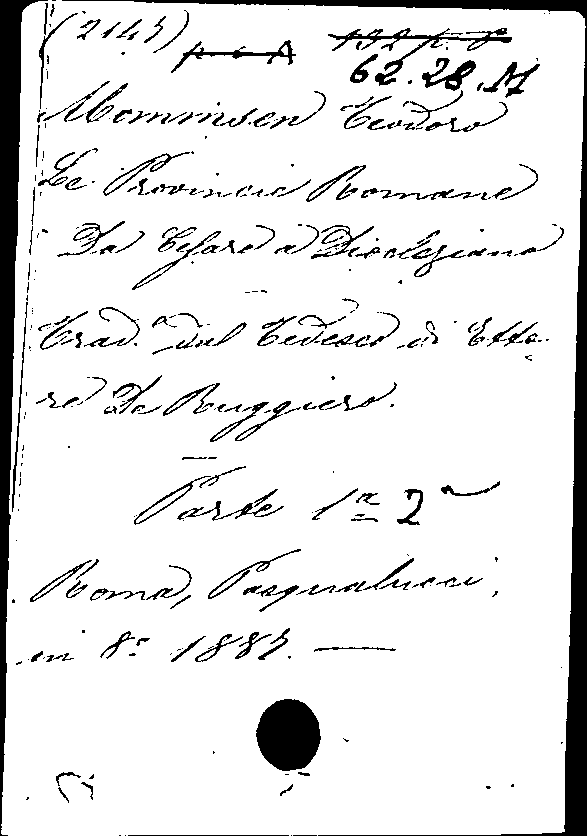 (2145)
62.28.M
Mommsen Teodoro
Le Provincie Romane
Da Cesare a Diocleziano
Trad.ª dal Tedesco di Etto-
re De Ruggiero.
Parte 1ª 2ª
Roma, Pasqualucci,
in 8º 1887.